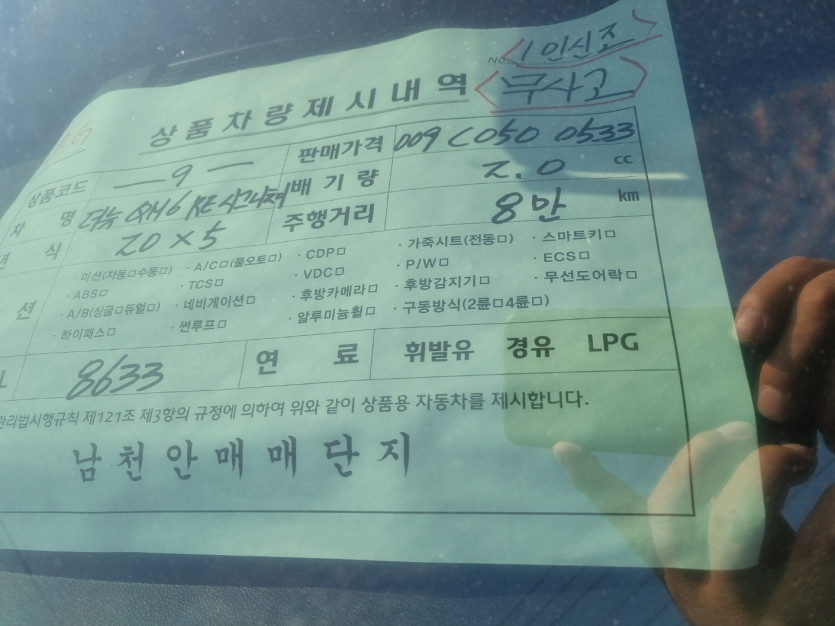 No. 1인신조
무사고
상품차량제시내역
상품코드 — 9 — 판매가격 009 C050 0533
차 명 더뉴 QM6 RE시그니처 배기량 2.0 cc
식 20×5 주행거리 8만 km
션
· 미션(자동□수동□) · A/C□(풀오토□) · CDP□ · 가죽시트(전동□) · 스마트키□
· ABS□ · TCS□ · VDC□ · P/W□ · ECS□
· A/B(싱글□듀얼□) · 네비게이션□ · 후방카메라□ · 후방감지기□ · 무선도어락□
· 하이패스□ · 썬루프□ · 알루미늄휠□ · 구동방식(2륜□4륜□)
8633 연 료 휘발유 경유 LPG
관리법시행규칙 제121조 제3항의 규정에 의하여 위와 같이 상품용 자동차를 제시합니다.
남천안매매단지